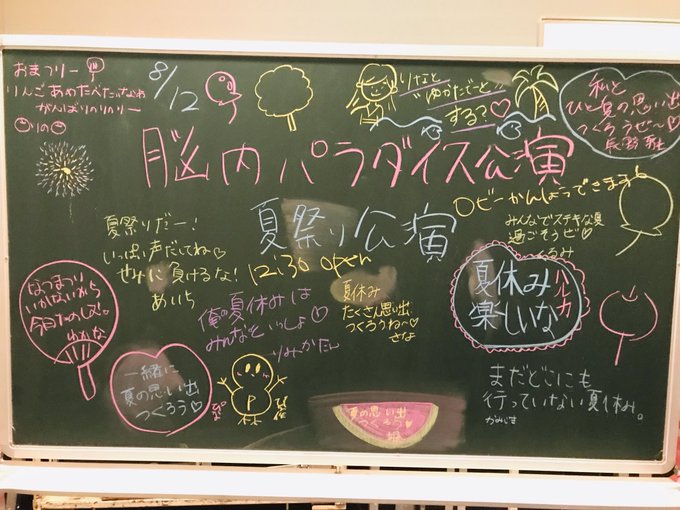 おまつりー
りんごあめたべたいなぁね
がんばりのりのりー
りの
8/12
りなと
ゆかたでーと
する?♡
私と
ひと夏の思い出
つくろうぜ〜♡
脳内パラダイス公演
夏祭り公演
12:30 open
ロビーかんばってきます
みんなでステキな夏
過ごそうゼ♡
くるみ
夏祭りだー!
いっぱい声だしてね♡
せみに負けるな!
あいち
なつまつり
いかないから
今日たのしむ。
わかな
俺の夏休みは
みんなといっしょ♡
りみかたん
夏休み
たくさん思い出
つくろうね〜♡
さな
夏休み
楽しいな
ルカ
一緒に
夏の思い出
つくろう♡
P
夏の思い出
つくろう
まだどこにも
行っていない夏休み。